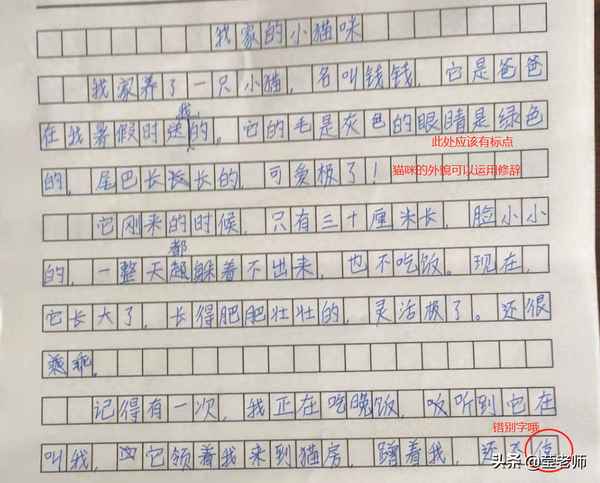 我家的小猫咪
我家养了一只小猫，名叫钱钱，它是爸爸
我
在我暑假时送的。它的毛是灰色的眼睛是绿色
此处应该有标点
的，尾巴长长长的，可爱极了！ 猫咪的外貌可以运用修辞
它刚来的时候，只有三十厘米长，脸小小
都
的，一整天躲着不出来，也不吃饭。现在，
它长大了，长得肥肥壮壮的，灵活极了。还很
乖乖。
记得有一次，我正在吃晚饭，听到它在
错别字哦
叫我，它领着我来到猫房，蹭着我，还不住
头条 @莹老师